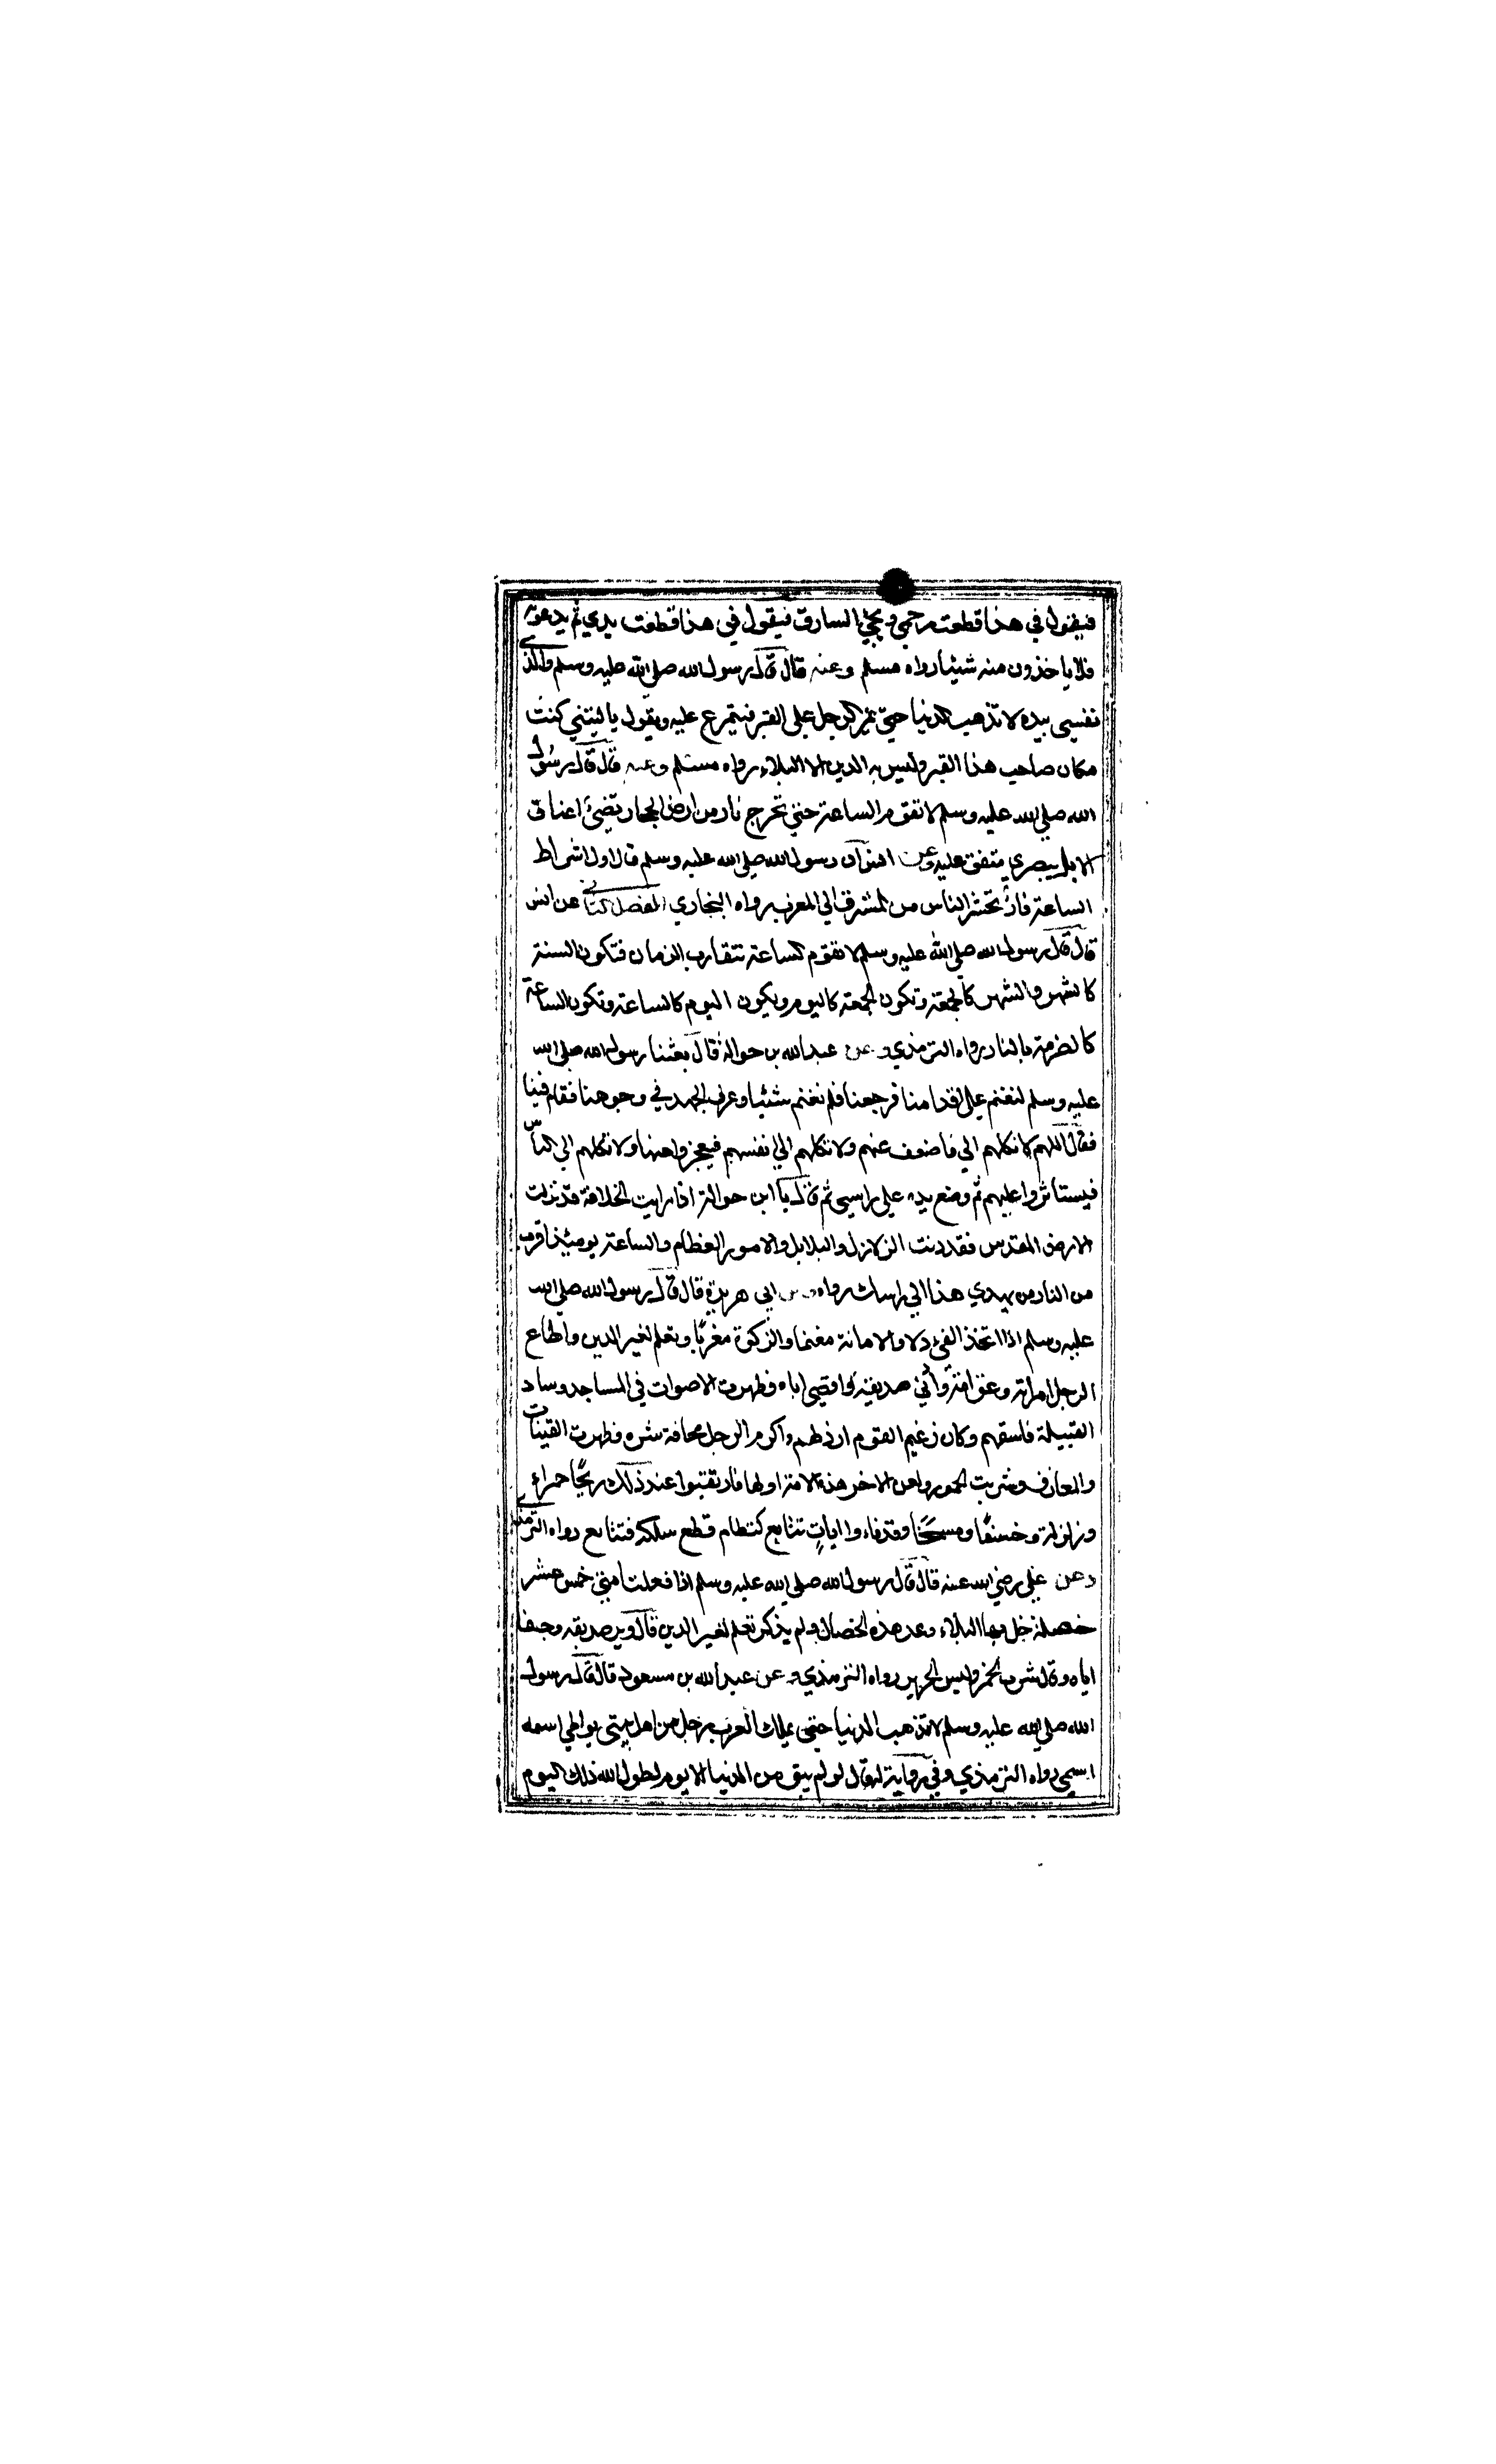 فيقول في هذا قطعت رحمي ويجئ السارق فيقول في هذا قطعت يدي ثم يدعونه
فلا ياخذون منه شيئا رواه مسلم وعنه قال قال رسول الله صلي الله عليه وسلم والذي
نفسي بيده لا تذهب الدنيا حتي يمر الرجل علي القبر فيتمرغ عليه ويقول يا ليتني كنت
مكان صاحب هذا القبر وليس به الدين الا البلاء رواه مسلم وعنه قال قال رسول
الله صلي الله عليه وسلم لا تقوم الساعة حتي تخرج نار من ارض الحجاز تضيئ اعناق
الابل ببصري متفق عليه وعن انس ان رسول الله صلي الله عليه وسلم قال اول اشراط
الساعة فنار تحشر الناس من المشرق الي المغرب رواه البخاري الفصل الثاني عن انس
قال قال رسول الله صلي الله عليه وسلم لا تقوم الساعة تتقارب الزمان فتكون السنة
كالشهر والشهر كالجمعة وتكون الجمعة كاليوم ويكون اليوم كالساعة وتكون الساعة
كالضرمة بالنار رواه الترمذي وعن عبد الله بن حوالة قال بعثنا رسول الله صلي الله
عليه وسلم لنغنم علي اقدامنا فرجعنا فلم نغنم شئيا وعرف الجهد في وجوهنا فقام فينا
فقال اللهم لا تكلهم الي فاضعف عنهم ولا تكلهم الي انفسهم فيعجزوا عنها ولا تكلهم الي الناس
فيستاثروا عليهم ثم وضع يده علي راسي ثم قال يا ابن حوالة اذا رايت الخلافة قد نزلت
الارض المقدس فقد دنت الزلازل والبلابل والامور العظام والساعة يومئيذ اقرب
من الناس من يدي هذا الي راسك رواه وعن ابي هريرة قال قال رسول الله صلي الله
عليه وسلم اذا اتخذ الفئ دلا والامانة مغنما والزكوة مغرما وتعلم لغير الدين واطاع
الرجل امراته وعق امه وادني صديقه واقصي اباه وظهرت الاصوات في المساجد وساد
القبيلة فاسقهم وكان زعيم القوم ارذلهم واكرم الرجل مخافة شره وظهرت القينات
والمعازف وشربت الخمور ولعن الاخر هذه الامة اولها فارتقبوا عند ذلك ريحا حمراء
وزلزلة وخسفا ومسخا وقذفاء وايات تتابع كنظام قطع سلكه فتتابع رواه الترمذي
وعن علي رضي الله عنه قال قال رسول الله صلي الله عليه وسلم اذا فعلت امتي خمس عشر
خصلة حل بها البلاء وعد هذه الخصال ولم يذكر تعلم لغير الدين قال وبر صديقه وجفا
اباه وقال شرب الخمر ولبس الحرير رواه الترمذي وعن عبد الله بن مسعود قال قال رسول
الله صلي الله عليه وسلم لا تذهب الدنيا حتي يملك العرب رجل من اهل بيتي يواطي اسمه
اسمي رواه الترمذي وفي رواية له قال لو لم يبق من الدنيا الا يوم لطول الله ذلك اليوم